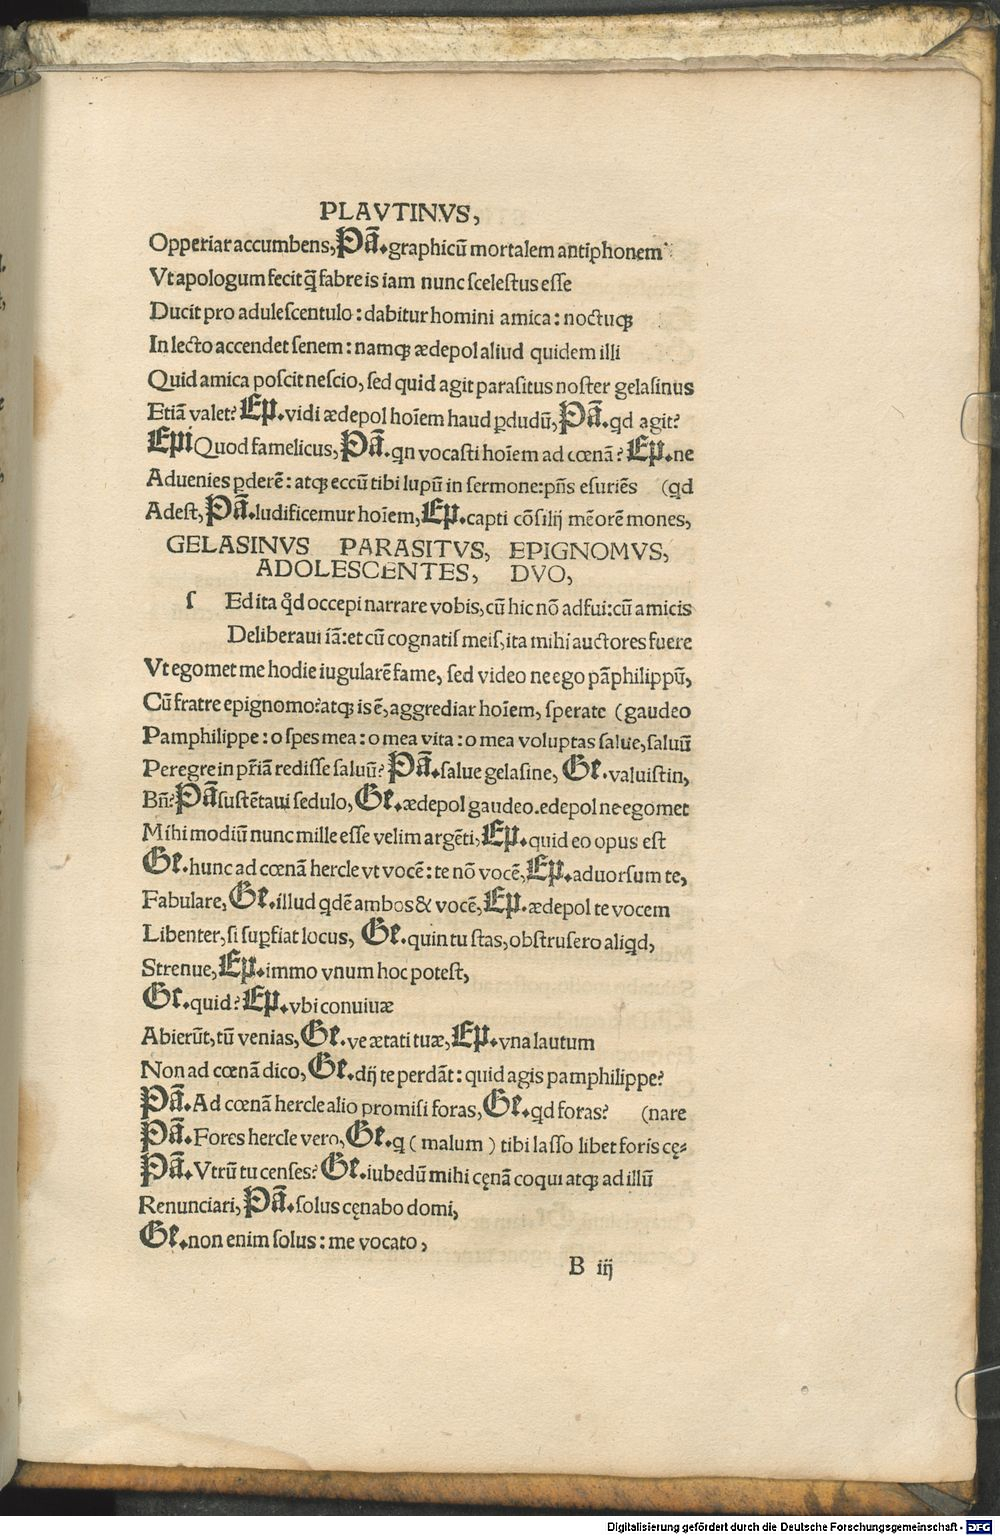 PLAVTINVS,
Opperiar accumbens, Pã. graphicũ mortalem antiphonem
Vt apologum fecit q̃ fabre is iam nunc scelestus esse
Ducit pro adulescentulo: dabitur homini amica: noctuqꝫ
In lecto accendet senem: namqꝫ ædepol aliud quidem illi
Quid amica poscit nescio, sed quid agit parasitus noster gelasinus
Etiã valet? Ep. vidi ædepol hoĩem haud ꝑdudũ, Pã. qd agit?
Epi Quod famelicus, Pã. qn vocasti hoĩem ad cœnã? Ep. ne
Aduenies ꝑderẽ: atqꝫ eccũ tibi lupũ in sermone: pñs esuriẽs (qd
Adest, Pã. ludificemur hoĩem, Ep. capti cõsilij mẽorẽ mones,
GELASINVS PARASITVS, EPIGNOMVS,
ADOLESCENTES, DVO,
ſ Edita q̊d occepi narrare vobis, cũ hic nõ adfui: cũ amicis
Deliberaui iã: et cũ cognatis meis, ita mihi auctores fuere
Vt egomet me hodie iugularẽ fame, sed video ne ego pãphilippũ,
Cũ fratre epignomo? atqꝫ is ẽ, aggrediar hoĩem, sperate (gaudeo
Pamphilippe: o spes mea: o mea vita: o mea voluptas salue, saluũ
Peregre in pr̃iã redisse saluũ? Pã. salue gelasine, Ge. valuistin,
Bñ? Pã sustẽtaui sedulo, Ge. ædepol gaudeo. edepol ne egomet
Mihi modiũ nunc mille esse velim argẽti, Ep. quid eo opus est
Ge. hunc ad cœnã hercle vt vocẽ: te nõ vocẽ, Ep. aduorsum te,
Fabulare, Ge. illud qdẽ ambos & vocẽ, Ep. ædepol te vocem
Libenter, si suꝑfiat locus, Ge. quin tu stas, obstrusero aliqd,
Strenue, Ep. immo vnum hoc potest,
Ge. quid? Ep. vbi conuiuæ
Abierũt, tũ venias, Ge. ve ætati tuæ, Ep. vna lautum
Non ad cœnã dico, Ge. dij te perdãt: quid agis pamphilippe?
Pã. Ad cœnã hercle alio promisi foras, Ge. qd foras? (nare
Pã. Fores hercle vero, Ge. q ( malum ) tibi lasso libet foris cę-
Pã. Vtrũ tu censes? Ge. iubedũ mihi cęnã coqui atqꝫ ad illũ
Renunciari, Pã. solus cęnabo domi,
Ge. non enim solus: me vocato,
B iij
Digitalisierung gefördert durch die Deutsche Forschungsgemeinschaft - DFG